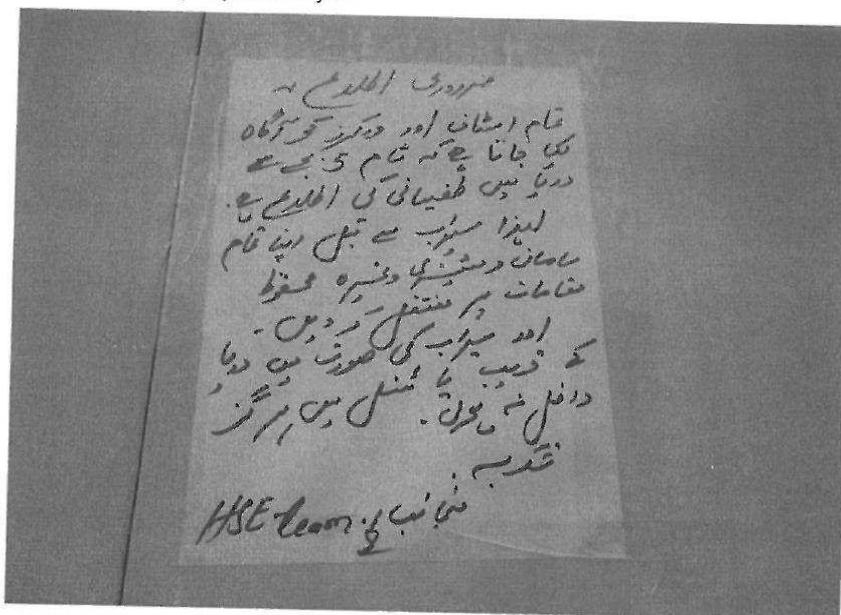 ضروری اطلاع ؍
تمام اسٹاف اور ورکرز کو آگاہ
کیا جاتا ہے کہ شام 5 بجے سے
دریا میں طغیانی کی اطلاع ہے۔
لہذا سیلاب سے قبل اپنا تمام
سامان و مشینری وغیرہ محفوظ
مقامات پر منتقل کر دیں۔
اور سیلاب کی صورت میں دریا
کے قریب یا ٹنل میں ہرگز
داخل نہ ہوں۔
شکریہ۔
منجانب HSE team